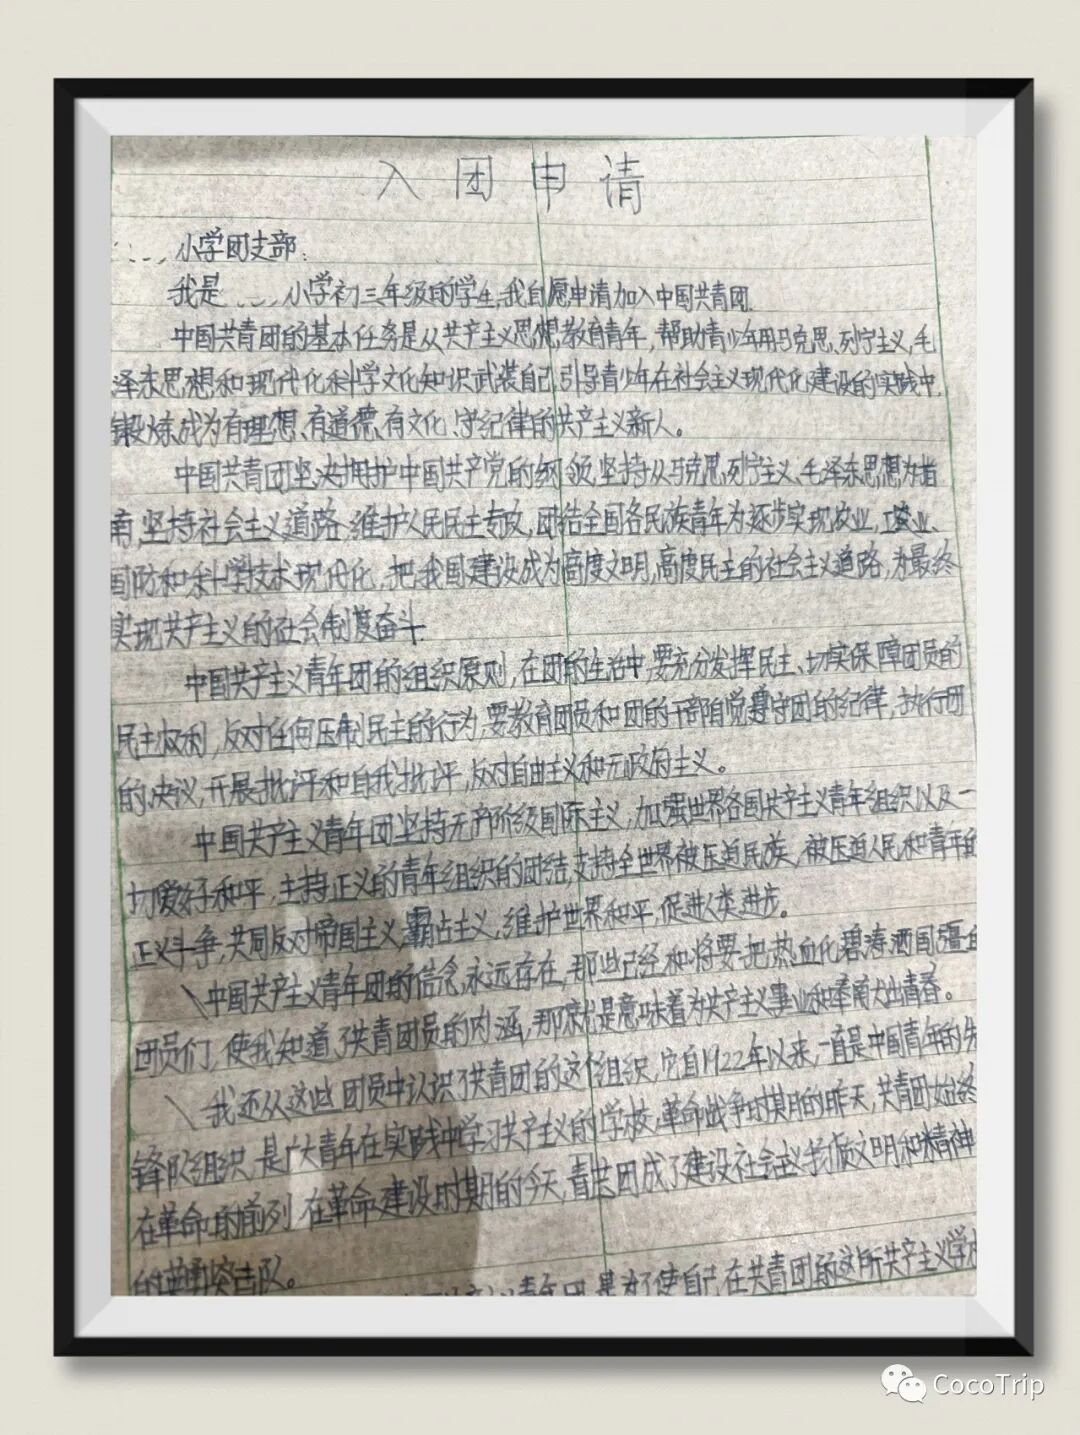 入团申请
小学团支部:
我是 小学初三年级的学生,我自愿申请加入中国共青团.
中国共青团的基本任务是从共产主义思想教育青年,帮助青少年用马克思、列宁主义,毛
泽东思想和现代化科学文化知识武装自己,引导青少年在社会主义现代化建设的实践中,
锻炼成为有理想、有道德、有文化、守纪律的共产主义新人。
中国共青团坚决拥护中国共产党的纲领,坚持从马克思、列宁主义、毛泽东思想为指
南,坚持社会主义道路,维护人民民主专政,团结全国各民族青年为逐步实现农业,工业、
国防和科学技术现代化,把我国建设成为高度文明,高度民主的社会主义道路,为最终
实现共产主义的社会制度奋斗.
中国共产主义青年团的组织原则,在团的生活中,要充分发挥民主、切实保障团员的
民主权利,反对任何压制民主的行为,要教育团员和团的干部自觉遵守团的纪律,执行团
的决议,开展批评和自我批评,反对自由主义和无政府主义。
中国共产主义青年团坚持无产阶级国际主义,加强世界各国共产主义青年组织以及一
切爱好和平,主持正义的青年组织的团结,支持全世界被压迫民族、被压迫人民和青年的
正义斗争,共同反对帝国主义,霸占主义,维护世界和平,促进人类进步。
中国共产主义青年团的信念,永远存在,那些已经和将要把热血化碧涛洒国疆
团员们,使我知道了共青团员的内涵,那就是意味着为共产主义事业和奉献出青春。
我还从这些团员中认识了共青团的这个组织,它自1922年以来,一直是中国青年的先
锋队组织,是广大青年在实践中学习共产主义的学校,革命战争时期的昨天,共青团始终
在革命的前列,在革命建设时期的今天,青共团成了建设社会主义物质文明和精神
的 突击队。
青年团是为了使自己,在共青团的这所共产主义学
CocoTrip